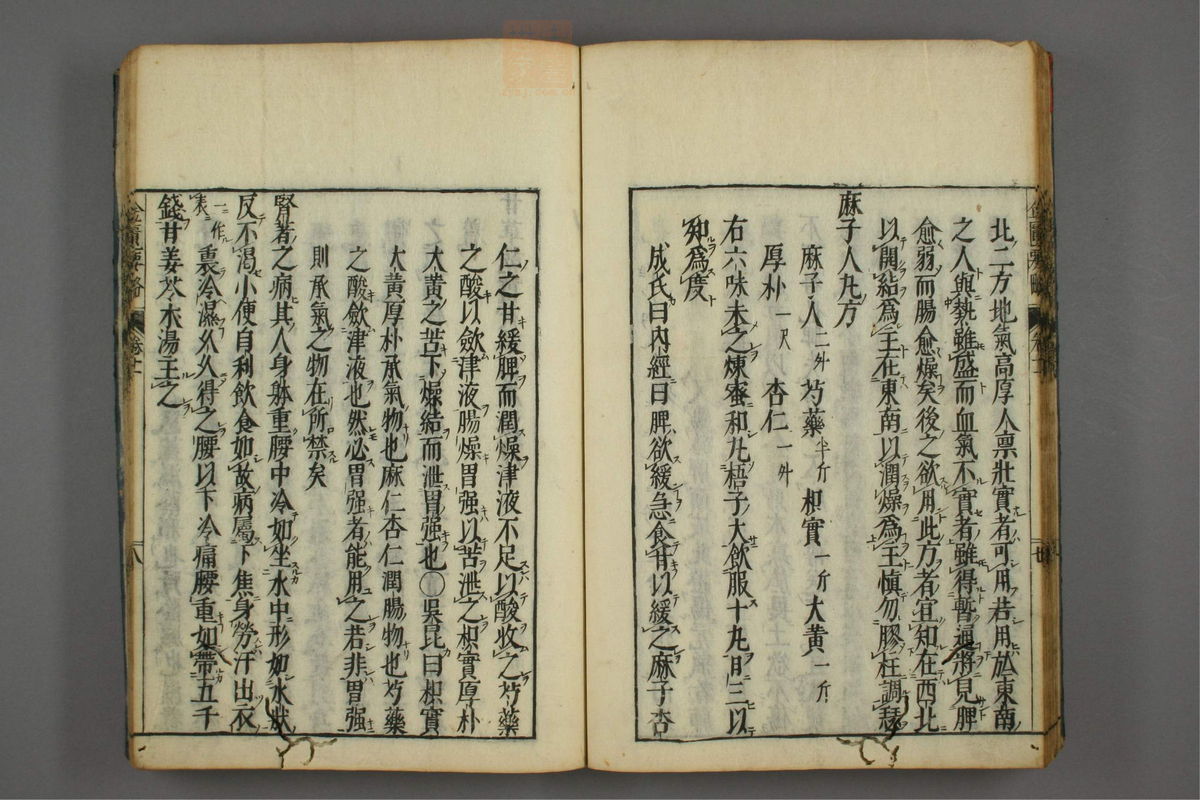 北二方地氣高厚人禀壯實者可用若用於東南
之人與熱雖盛而血氣不實者雖得暫通將見脾
愈弱而腸愈燥矣後之欲用此方者宜知在西北
以開結為主在東南以潤燥為主慎勿膠柱調瑟
麻子人丸方
麻子人二升 芍藥半斤 枳實一斤 大黃一斤
厚朴一尺 杏仁一升
右六味末之煉蜜和丸梧子大飲服十丸日三以
知為度
成氏曰內經曰脾欲緩急食甘以緩之麻子杏
仁之甘緩脾而潤燥津液不足以酸收之芍藥
之酸以斂津液腸燥胃强以苦泄之枳實厚朴
大黃之苦下燥結而泄胃强也〇吳昆曰枳實
大黃厚朴承氣物也麻仁杏仁潤腸物也芍藥
之酸斂津液也然必胃强者能用之若非胃强
則承氣之物在所禁矣
腎著之病其人身躰重腰中冷如坐水中形如水狀
反不渴小便自利飲食如故病屬下焦身勞汗出衣
一作表裏冷濕久久得之腰以下冷痛腰重如帶五千
錢甘姜苓朮湯主之
金匱要略 卷十一 八